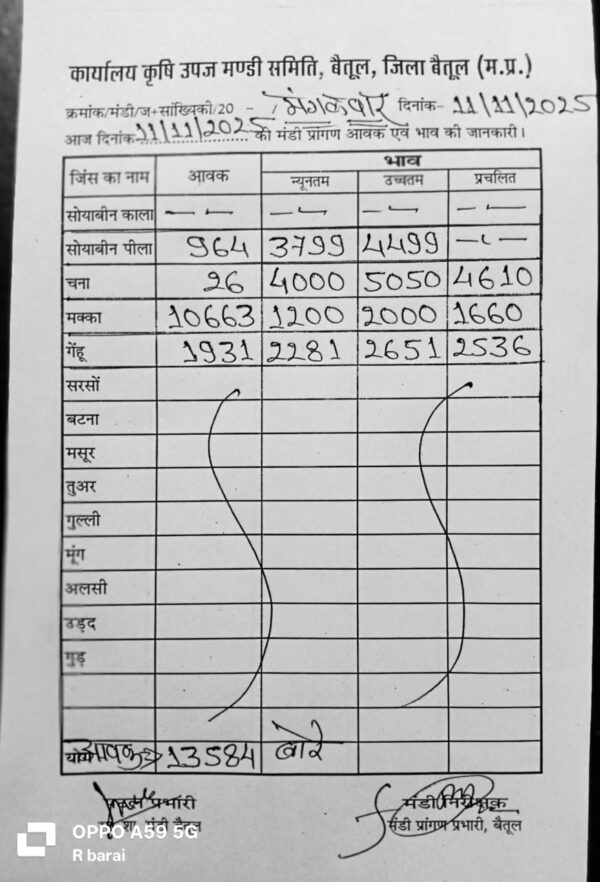 कार्यालय कृषि उपज मण्डी समिति, बैतूल, जिला बैतूल (म.प्र.)
क्रमांक/मंडी/ज+सांख्यिकी/20 - मंगलवार दिनांक- 11/11/2025
आज दिनांक 11/11/2025 की मंडी प्रांगण आवक एवं भाव की जानकारी।
जिंस का नाम आवक भाव
न्यूनतम उच्चतम प्रचलित
सोयाबीन काला -- -- -- --
सोयाबीन पीला 964 3799 4499 --
चना 26 4000 5050 4610
मक्का 10663 1200 2000 1660
गेंहू 1931 2281 2651 2536
सरसों
बटना
मसूर
तुअर
गुल्ली
मूंग
अलसी
उड़द
गुड़
योग आवक 13584 बोरे
प्रभारी मंडी निरीक्षक
शा. मंडी बैतूल मंडी प्रांगण प्रभारी, बैतूल
OPPO A59 5G
R barai